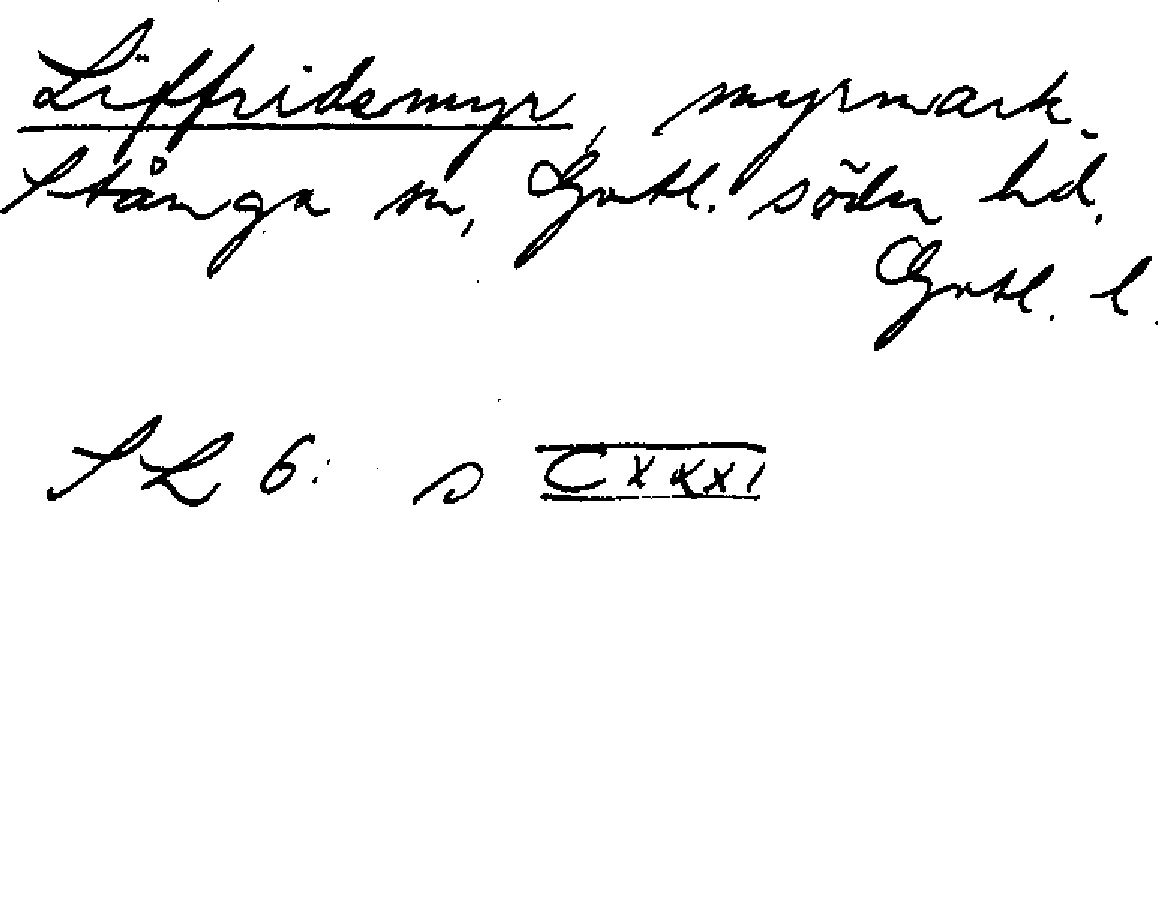 Liffridemyr, myrmark.
Stånga sn, Gotl. södra hd.
Gotl. l.
SL 6: s CXXXI